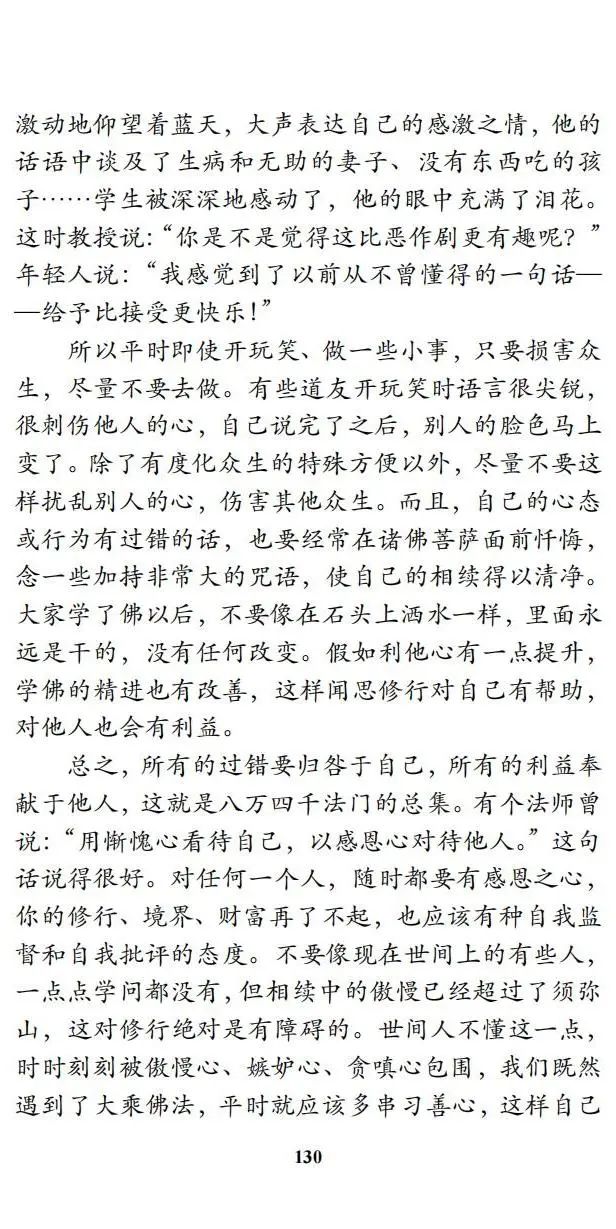 激动地仰望着蓝天，大声表达自己的感激之情，他的
话语中谈及了生病和无助的妻子、没有东西吃的孩
子……学生被深深地感动了，他的眼中充满了泪花。
这时教授说：“你是不是觉得这比恶作剧更有趣呢？”
年轻人说：“我感觉到了以前从不曾懂得的一句话—
—给予比接受更快乐！”
所以平时即使开玩笑、做一些小事，只要损害众
生，尽量不要去做。有些道友开玩笑时语言很尖锐，
很刺伤他人的心，自己说完了之后，别人的脸色马上
变了。除了有度化众生的特殊方便以外，尽量不要这
样扰乱别人的心，伤害其他众生。而且，自己的心态
或行为有过错的话，也要经常在诸佛菩萨面前忏悔，
念一些加持非常大的咒语，使自己的相续得以清净。
大家学了佛以后，不要像在石头上洒水一样，里面永
远是干的，没有任何改变。假如利他心有一点提升，
学佛的精进也有改善，这样闻思修行对自己有帮助，
对他人也会有利益。
总之，所有的过错要归咎于自己，所有的利益奉
献于他人，这就是八万四千法门的总集。有个法师曾
说：“用惭愧心看待自己，以感恩心对待他人。”这句
话说得很好。对任何一个人，随时都要有感恩之心，
你的修行、境界、财富再了不起，也应该有种自我监
督和自我批评的态度。不要像现在世间上的有些人，
一点点学问都没有，但相续中的傲慢已经超过了须弥
山，这对修行绝对是有障碍的。世间人不懂这一点，
时时刻刻被傲慢心、嫉妒心、贪嗔心包围，我们既然
遇到了大乘佛法，平时就应该多串习善心，这样自己
130